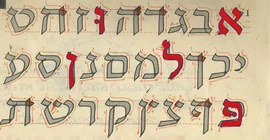 אבגדהוזחט
יכךלמםנןסע
פףצץקרשת